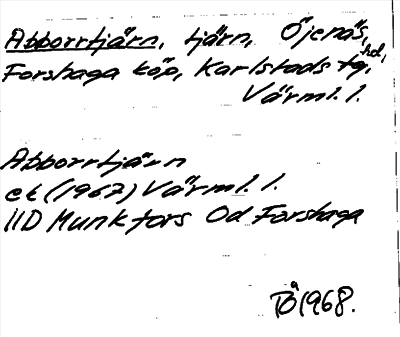 Abborrtjärn, tjärn, Öjenäs,
Forshaga köp, Karlstads tg. hd,
Värml. l.
Abborrtjärn
ek (1967) Värml. l.
11D Munkfors 0d Forshaga
1968.